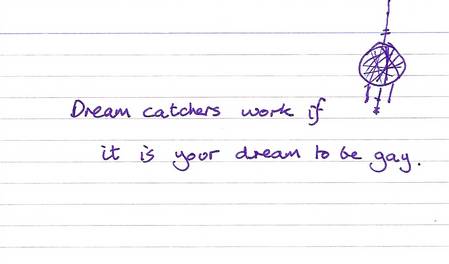 Dream catchers work if
it is your dream to be gay.